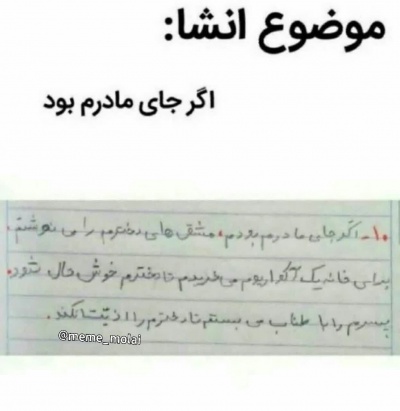 موضوع انشا:
اگر جای مادرم بود
۱۰- اگر جای مادرم بودم، مشق های دخترم را می نوشتم.
برای خانه یک آکواریوم می خریدم تا دخترم خوش حال شود.
پسرم را با طناب می بستم تا دخترم را اذیّت نکند.
@meme_molai